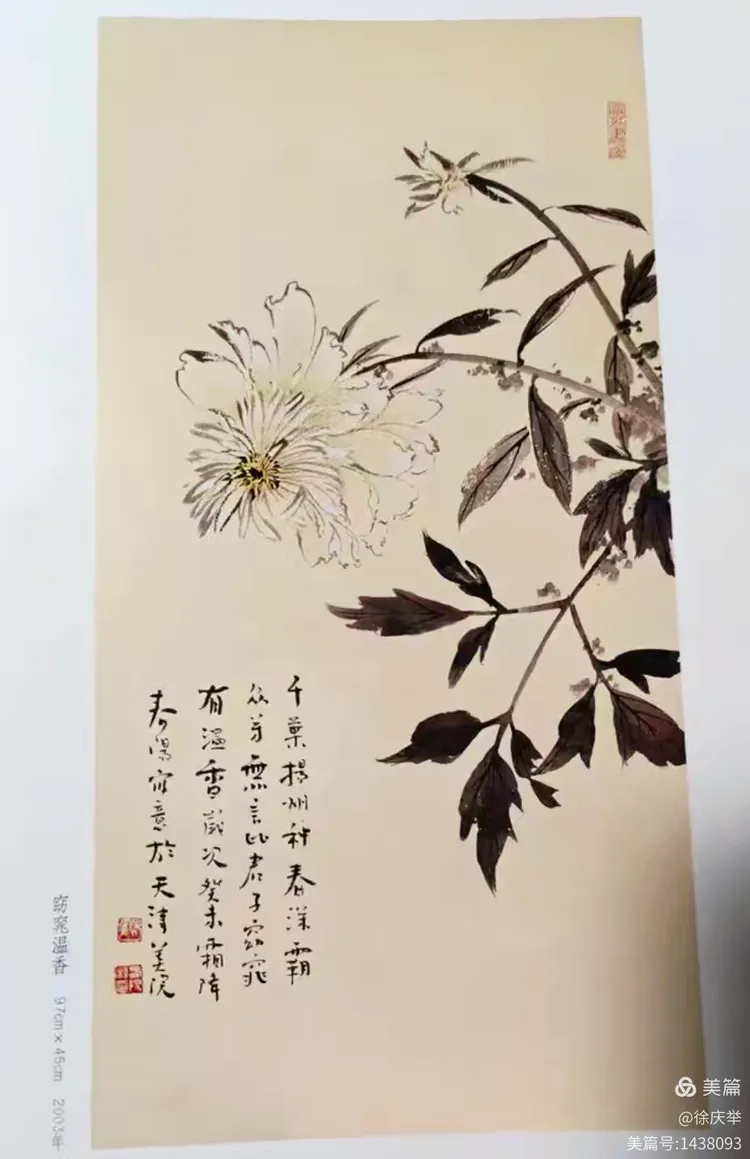 千葉揚州种春深霸
众芳無言比君子窈窕
有温香歲次癸未霜降
春陽寫意於天津美院
窈窕溫香 97cm×45cm 2003年
美篇
@徐庆举
美篇号:1438093